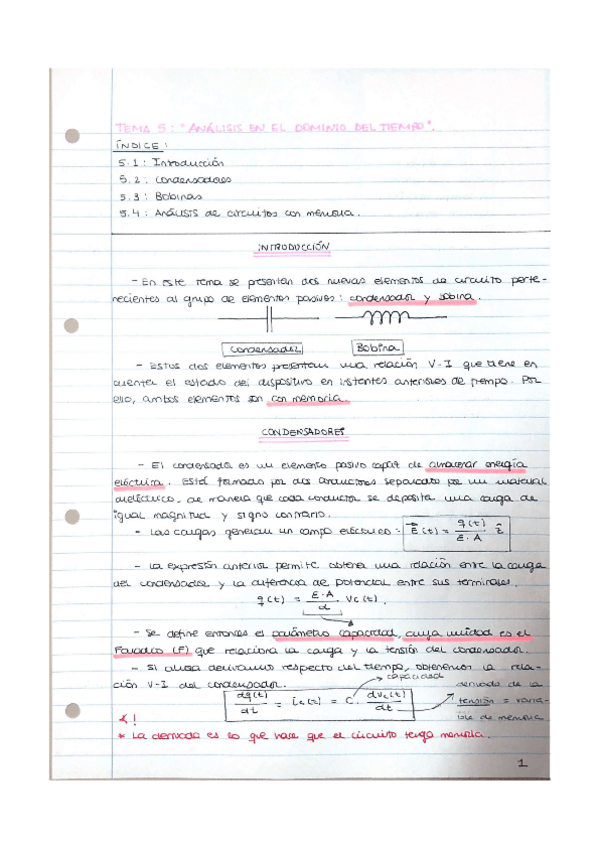 TEMA 5: "ANÁLISIS EN EL DOMINIO DEL TIEMPO".
ÍNDICE:
5.1: Introducción
5.2: Condensadores
5.3: Bobinas
5.4: ANÁLISIS de circuitos con memoria.
INTRODUCCIÓN
- En este tema se presentan dos nuevos elementos de circuito perte-
necientes al grupo de elementos pasivos: condensador y bobina.
Condensador Bobina
- Estos dos elementos presentan una relación V-I que tiene en
cuenta el estado del dispositivo en instantes anteriores de tiempo. Por
ello, ambos elementos son con memoria.
CONDENSADORES
- El condensador es un elemento pasivo capaz de almacenar energía
eléctrica. Está formado por dos conductores separados por un material
dieléctrico, de manera que cada conductor se deposita una carga de
igual magnitud y signo contrario.
- Las cargas generan un campo eléctrico: E(t) = q(t) / E·A z
- La expresión anterior permite obtener una relación entre la carga
del condensador y la diferencia de potencial entre sus terminales.
q(t) = E·A / d · Vc(t).
- Se define entonces el parámetro capacidad, cuya unidad es el
Faradio (F) que relaciona la carga y la tensión del condensador.
- Si ahora derivamos respecto del tiempo, obtenemos la rela-
ción V-I del condensador.
capacidad
dq(t) / dt = ic(t) = C · dvc(t) / dt
derivada de la
tensión = varia-
ble de memoria
!
* La derivada es lo que hace que el circuito tenga memoria.
1